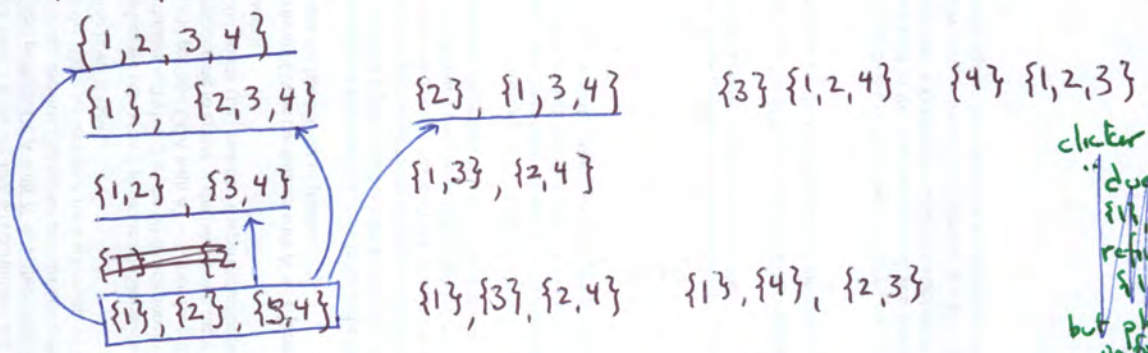 {1,2,3,4}
{1}, {2,3,4} {2}, {1,3,4} {3} {1,2,4} {4} {1,2,3}
{1,2}, {3,4} {1,3}, {2,4}
{1}, {2}, {3,4} {1}, {3}, {2,4} {1}, {4}, {2,3}
clicker
{1}
but